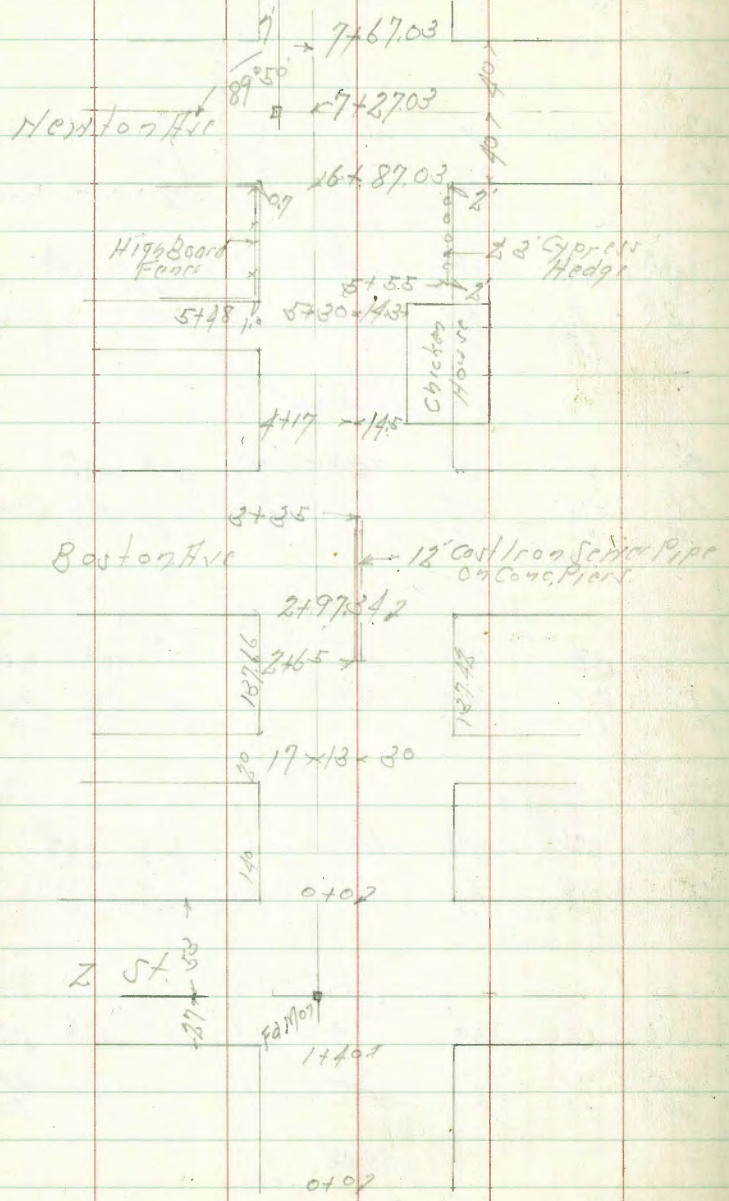 7'
7+67.03
89°50'
40'
Newton Ave
7+27.03
40'
6+87.03
0.7
2'
High Board
Fence
2 3' Cypress
Hedge
5+55
2'
5+48
1.0
5+30 14.3
Chicken
House
4+17 14.5
3+35
Boston Ave
12" Cast Iron Sewer Pipe
on Conc. Piers
2+97.34
137.66
2+65
137.48
20
17 × 13 × 30
140
0+0
Z St.
27
53
Fd Mon
1+40
0+0